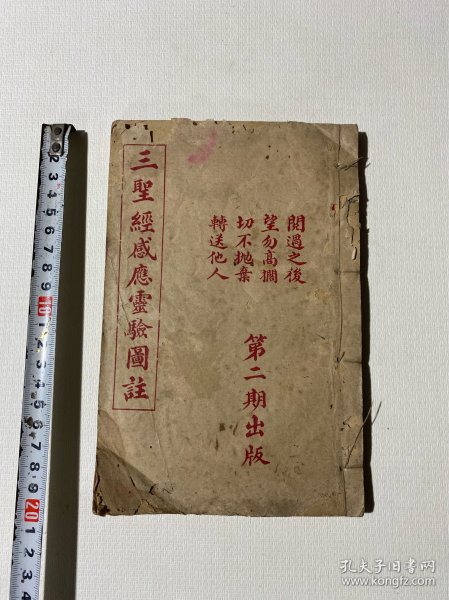 閱過之後
望勿高擱
切不抛棄
轉送他人
第二期出版
三聖經感應靈驗圖註
2 3 4 5 6 7 8 9 10 1 2 3 4 5 6 7 8 9 20 1 2 3 4
孔夫子旧书网
www.kongfz.com